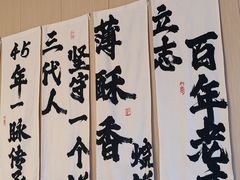 百年老
立志
薄酥香
坚守一个
三代人
45年一脉传